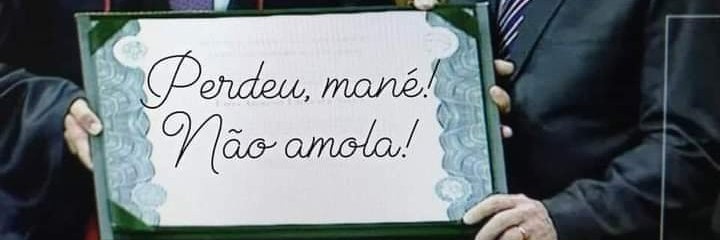 Perdeu, mané!
Não amola!